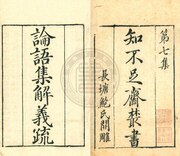 第七集
知不足齋叢書
長塘鮑氏開雕
論語集解義疏